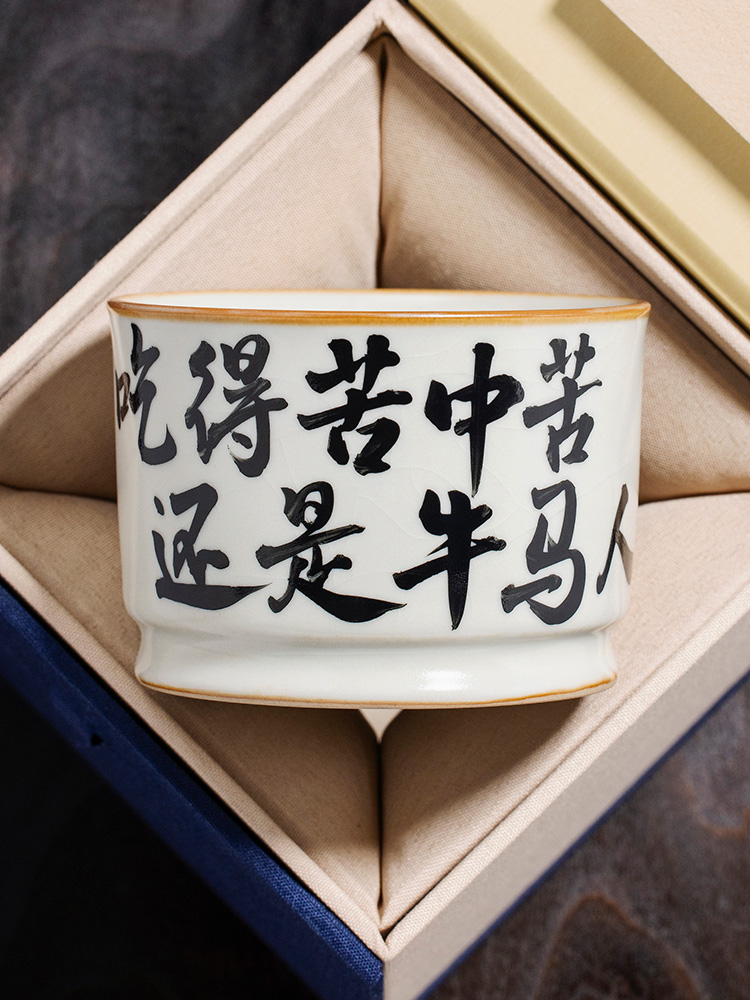 吃得苦中苦
还是牛马人